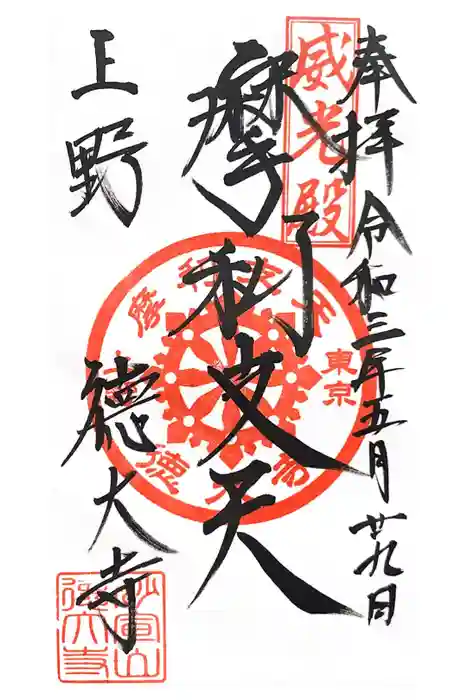 奉拝 令和三年五月廿九日
威光殿
摩利支天
上野 徳大寺
摩利支天
東京
徳大寺
妙宣山
徳大寺